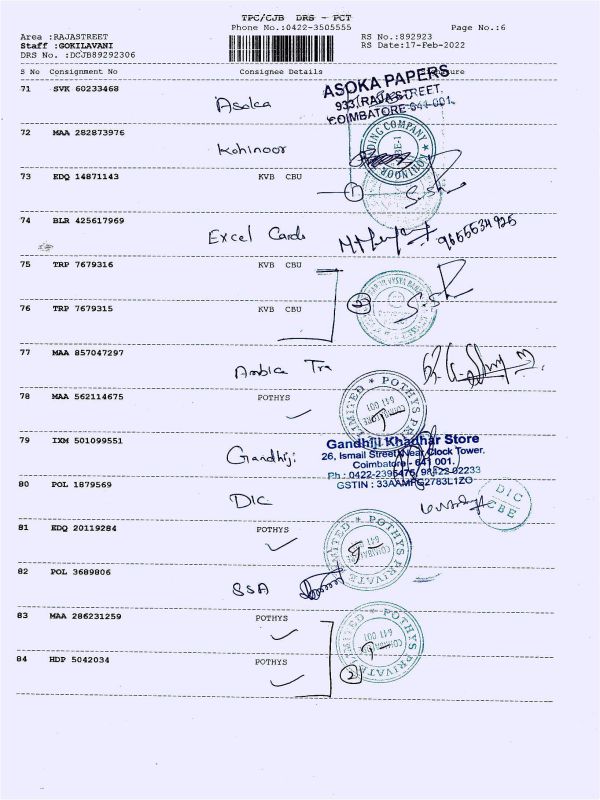 TPC/CJB DRS - PCT
Phone No.:0422-3505555 Page No.:6
Area :RAJASTREET RS No.:892923
Staff :GOKILAVANI RS Date:17-Feb-2022
DRS No. :DCJB89292306
S No Consignment No Consignee Details
71 SVK 60233468 Asoka
ASOKA PAPERS
933, RAJA STREET,
COIMBATORE-641 001.
72 MAA 282873976 Kohinoor
73 EDQ 14871143 KVB CBU 1
74 BLR 425617969 Excel Cards 9655534925
75 TRP 7679316 KVB CBU
76 TRP 7679315 KVB CBU 2
77 MAA 857047297 Ambica Tra
78 MAA 562114675 POTHYS
POTHYS PRIVATE LIMITED
79 IXM 501099551 Gandhiji
Gandhiji Khadhar Store
26, Ismail Street, Near Clock Tower.
Coimbatore - 641 001.
GSTIN : 33AAMPG2783L1ZO
80 POL 1879569 DIC
DIC
CBE
81 EDQ 20119284 POTHYS
POTHYS PRIVATE LIMITED
82 POL 3689806 SSA
83 MAA 286231259 POTHYS
POTHYS PRIVATE LIMITED
84 HDP 5042034 POTHYS 2